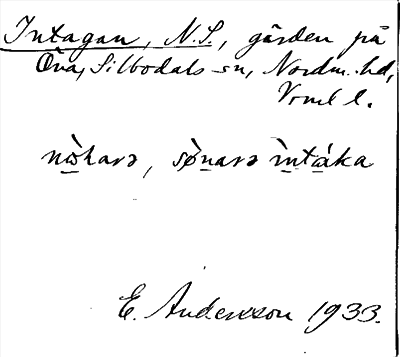 Intagan, N. S., gården på
Öna, Silbodals sn, Nordm. hd,
Vrml l.
nò̱karə, sø̀ṉarə ìṉtá̱ka
E. Andersson 1933.